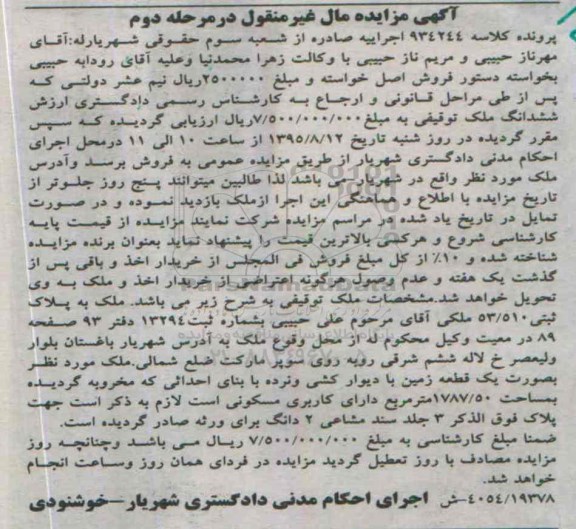 آگهی مزایده مال غیرمنقول درمرحله دوم
پرونده کلاسه ۹۳۴۲۴۴ اجراییه صادره از شعبه سوم حقوقی شهریارله:آقای
مهرناز حبیبی و مریم ناز حبیبی با وکالت زهرا محمدنیا وعلیه آقای رودابه حبیبی
بخواسته دستور فروش اصل خواسته و مبلغ ۲۵۰۰۰۰۰ریال نیم عشر دولتی که
پس از طی مراحل قانونی و ارجاع به کارشناس رسمی دادگستری ارزش
ششدانگ ملک توقیفی به مبلغ۷/۵۰۰/۰۰۰/۰۰۰ریال ارزیابی گردیده که سپس
مقرر گردیده در روز شنبه تاریخ ۱۳۹۵/۸/۱۲ از ساعت ۱۰ الی ۱۱ درمحل اجرای
احکام مدنی دادگستری شهریار از طریق مزایده عمومی به فروش برسد وآدرس
ملک مورد نظر واقع در شهریار می باشد لذا طالبین میتوانند پنج روز جلوتر از
تاریخ مزایده با اطلاع و هماهنگی این اجرا ازملک بازدید نموده و در صورت
تمایل در تاریخ یاد شده در مراسم مزایده شرکت نمایند مزایده از قیمت پایه
کارشناسی شروع و هرکسی بالاترین قیمت را پیشنهاد نماید بعنوان برنده مزایده
شناخته شده و ۱۰٪ از کل مبلغ فروش فی المجلس از خریدار اخذ و باقی پس از
گذشت یک هفته و عدم وصول هرگونه اعتراضی از خریدار اخذ و ملک به وی
تحویل خواهد شد.مشخصات ملک توقیفی به شرح زیر می باشد. ملک به پلاک
ثبتی۵۳/۵۱۰ ملکی آقای مرحوم علی حبیبی بشماره ثبت۱۳۲۹۴ دفتر ۹۳ صفحه
۸۹ در معیت وکیل محکوم له از محل وقوع ملک به آدرس شهریار باغستان بلوار
ولیعصر خ لاله ششم شرقی روبه روی سوپر مارکت ضلع شمالی.ملک مورد نظر
بصورت یک قطعه زمین با دیوار کشی ونرده با بنای احداثی که مخروبه گردیده
بمساحت ۱۷۸۷/۵۰مترمربع دارای کاربری مسکونی است لازم به ذکر است جهت
پلاک فوق الذکر ۳ جلد سند مشاعی ۲ دانگ برای ورثه صادر گردیده است.
ضمنا مبلغ کارشناسی به مبلغ ۷/۵۰۰/۰۰۰/۰۰۰ ریال می باشد وچنانچه روز
مزایده مصادف با روز تعطیل گردید مزایده در فردای همان روز وساعت انجام
خواهد شد.
۴۰۵۴/۱۹۳۷۸–ش اجرای احکام مدنی دادگستری شهریار–خوشنودی